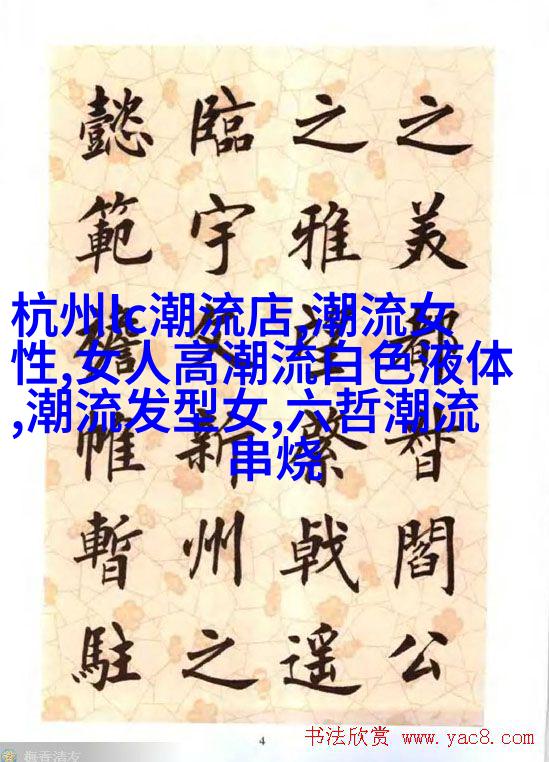 之美都督閻公
之雅望棨戟遥
臨宇文新州之
懿範襜帷暫駐
杭州lc潮流店,潮流女
性,女人高潮流白色液体
,潮流发型女,六哲潮流
串烧
4
书法欣赏 www.yac8.com